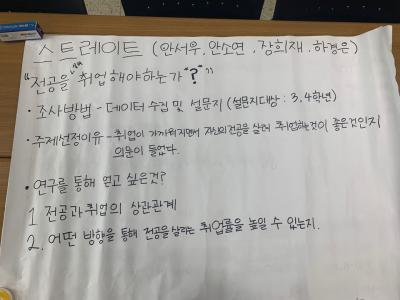 스트레이트 (안서우, 안소연, 장희재, 하경은)
"전공을 살려 취업해야하는가 "?""
· 조사방법 - 데이터 수집 및 설문지 (설문지대상 : 3, 4학년)
· 주제선정이유 - 취업이 가까워지면서 자신의전공을 살려 취업하는것이 좋은것인지
의문이 들었다.
· 연구를 통해 얻고 싶은것?
1 전공과 취업의 상관관계
2. 어떤 방향을 통해 전공을 살리는 취업률을 높일 수 있는지.